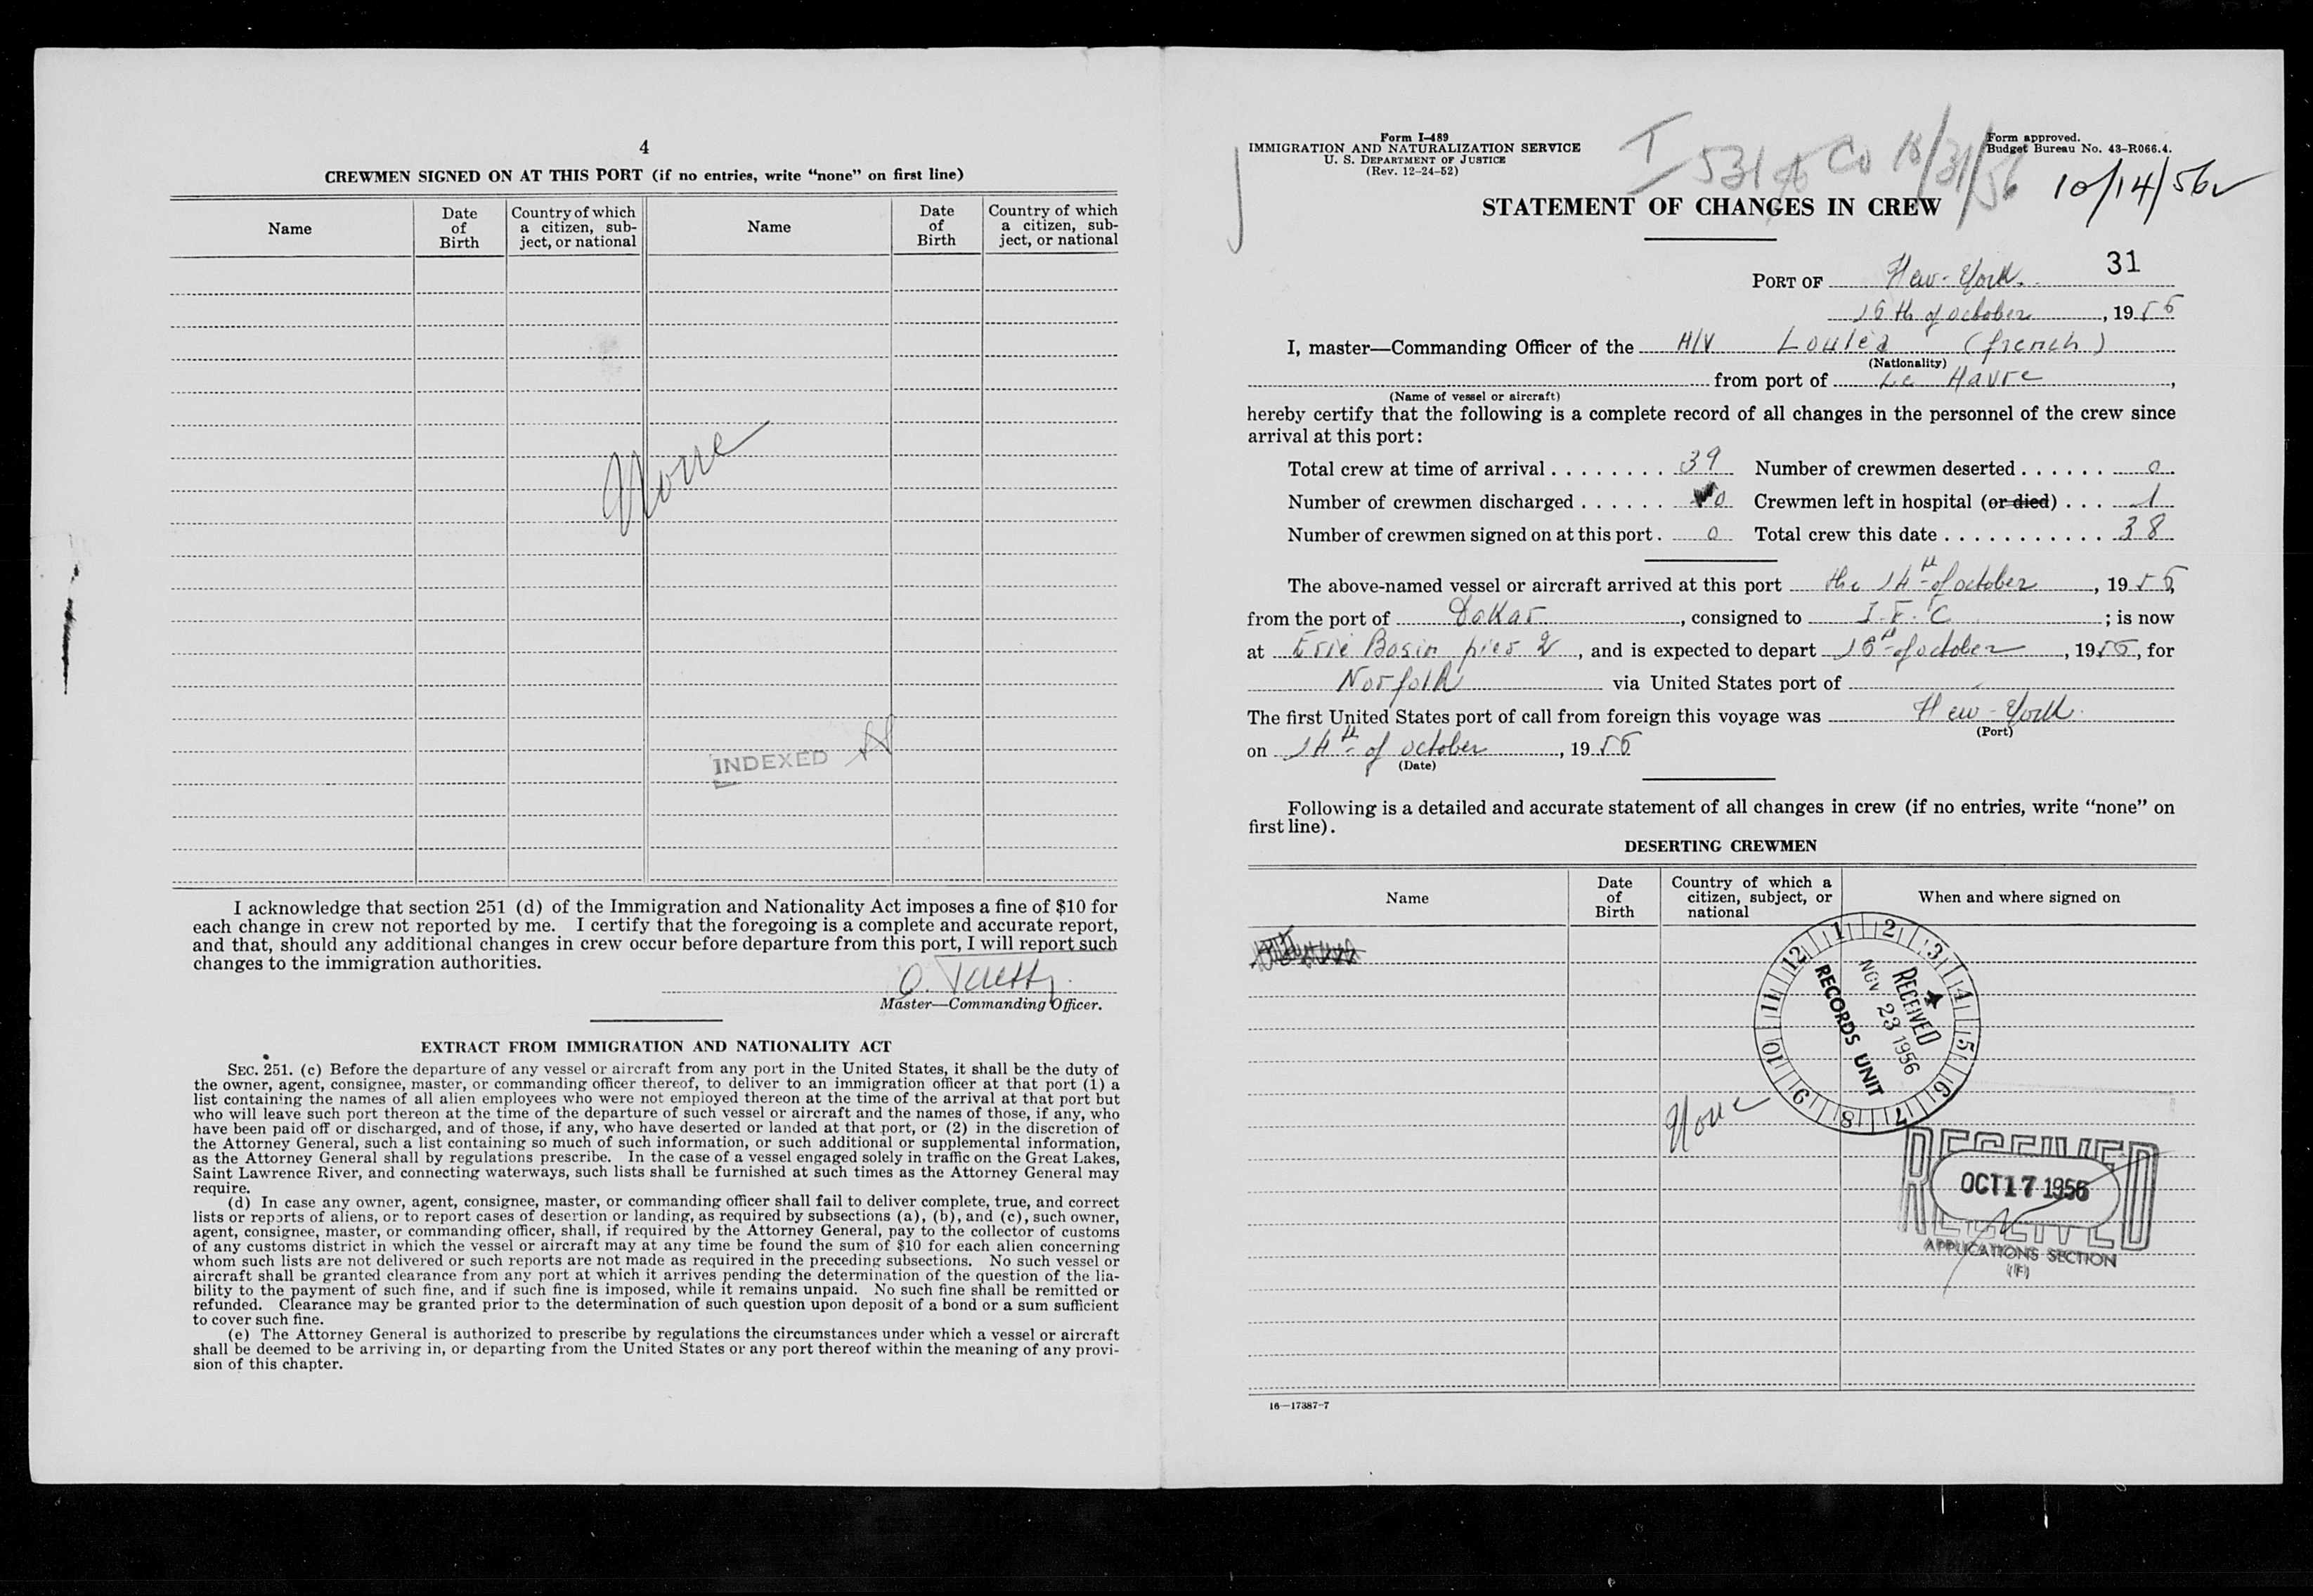 4
CREWMEN SIGNED ON AT THIS PORT (if no entries, write “none” on first line)
Name
Date of Birth
Country of which a citizen, subject, or national
Name
Date of Birth
Country of which a citizen, subject, or national
None
INDEXED
I acknowledge that section 251 (d) of the Immigration and Nationality Act imposes a fine of $10 for
each change in crew not reported by me. I certify that the foregoing is a complete and accurate report,
and that, should any additional changes in crew occur before departure from this port, I will report such
changes to the immigration authorities.
Master—Commanding Officer.
EXTRACT FROM IMMIGRATION AND NATIONALITY ACT
SEC. 251. (c) Before the departure of any vessel or aircraft from any port in the United States, it shall be the duty of
the owner, agent, consignee, master, or commanding officer thereof, to deliver to an immigration officer at that port (1) a
list containing the names of all alien employees who were not employed thereon at the time of the arrival at that port but
who will leave such port thereon at the time of the departure of such vessel or aircraft and the names of those, if any, who
have been paid off or discharged, and of those, if any, who have deserted or landed at that port, or (2) in the discretion of
the Attorney General, such a list containing so much of such information, or such additional or supplemental information,
as the Attorney General shall by regulations prescribe. In the case of a vessel engaged solely in traffic on the Great Lakes,
Saint Lawrence River, and connecting waterways, such lists shall be furnished at such times as the Attorney General may
require.
(d) In case any owner, agent, consignee, master, or commanding officer shall fail to deliver complete, true, and correct
lists or reports of aliens, or to report cases of desertion or landing, as required by subsections (a), (b), and (c), such owner,
agent, consignee, master, or commanding officer, shall, if required by the Attorney General, pay to the collector of customs
of any customs district in which the vessel or aircraft may at any time be found the sum of $10 for each alien concerning
whom such lists are not delivered or such reports are not made as required in the preceding subsections. No such vessel or
aircraft shall be granted clearance from any port at which it arrives pending the determination of the question of the lia-
bility to the payment of such fine, and if such fine is imposed, while it remains unpaid. No such fine shall be remitted or
refunded. Clearance may be granted prior to the determination of such question upon deposit of a bond or a sum sufficient
to cover such fine.
(e) The Attorney General is authorized to prescribe by regulations the circumstances under which a vessel or aircraft
shall be deemed to be arriving in, or departing from the United States or any port thereof within the meaning of any provi-
sion of this chapter.
Form I-489
IMMIGRATION AND NATURALIZATION SERVICE
U. S. DEPARTMENT OF JUSTICE
(Rev. 12-24-52)
Form approved.
Budget Bureau No. 43-R066.4.
10/31/56
10/14/56
STATEMENT OF CHANGES IN CREW
31
PORT OF New-York.
16 th of october, 1956
I, master—Commanding Officer of the M/V Louléa (french)
(Nationality)
from port of Le Havre,
(Name of vessel or aircraft)
hereby certify that the following is a complete record of all changes in the personnel of the crew since
arrival at this port:
Total crew at time of arrival . . . . . . . . 39 Number of crewmen deserted . . . . . . 0
Number of crewmen discharged . . . . . . 0 Crewmen left in hospital (or died) . . . 1
Number of crewmen signed on at this port . 0 Total crew this date . . . . . . . . . . . 38
The above-named vessel or aircraft arrived at this port the 14th of october, 1956,
from the port of Dakar, consigned to I.F.C; is now
at Erie Basin pier 2, and is expected to depart 16th of october, 1956, for
Norfolk via United States port of -
The first United States port of call from foreign this voyage was New-York.
(Port)
on 14th of october, 1956
(Date)
Following is a detailed and accurate statement of all changes in crew (if no entries, write “none” on
first line).
DESERTING CREWMEN
Name
Date of Birth
Country of which a citizen, subject, or national
When and where signed on
1 2 3 4 5 6 7 8 9 10 11 12
RECEIVED
NOV 23 1956
RECORDS UNIT
None
RECEIVED
OCT 17 1956
APPLICATIONS SECTION
16—17387-7